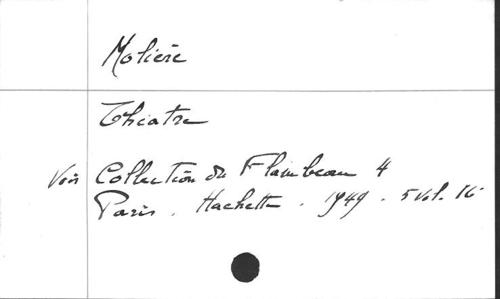 Molière
Théatre
Voir Collection du Flambeau 4
Paris. Hachette. 1949. 5 vol. 16